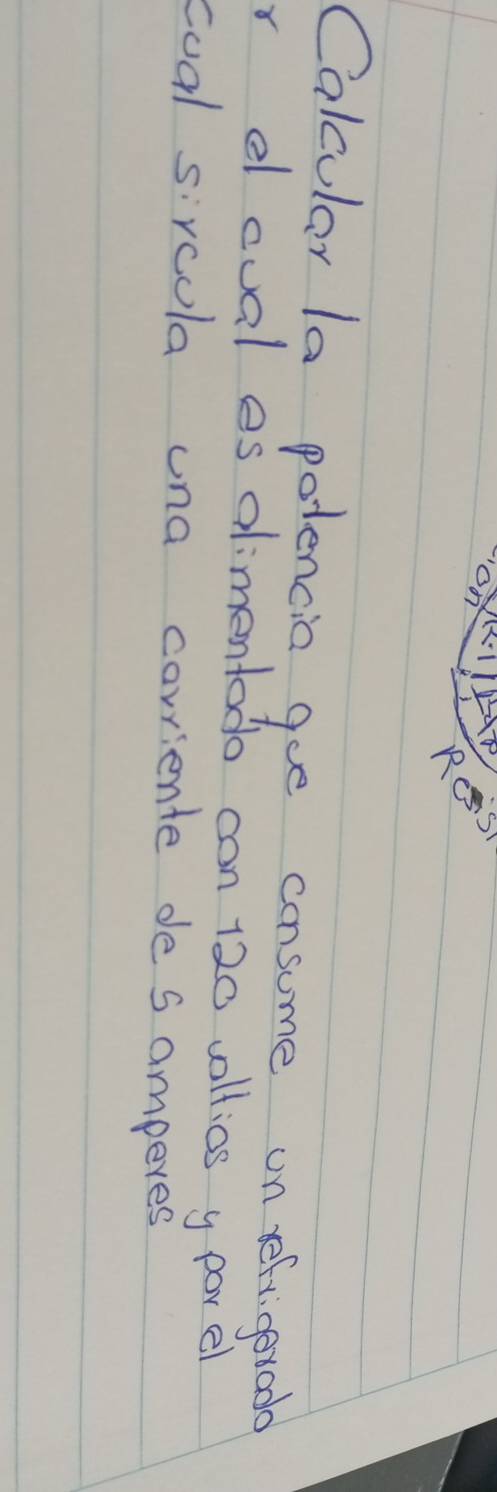 Calcular la potencia que consume un refrigerado
r el cual es alimentado con 120 voltios y por el
cual sircula una corriente de 5 amperes